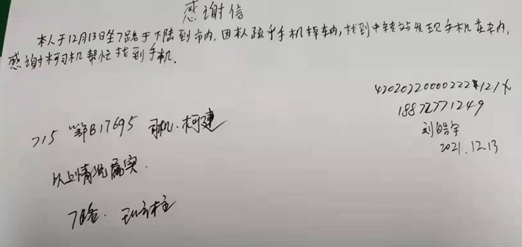 感谢信
本人于12月13日坐7路于下陆到市内,因本人疏乎手机掉车内,找到中转站发现手机在车内,
感谢柯司机帮忙找到手机.
42020220000222121X
18872771249
刘皓宇
2021.12.13
715 鄂B17695 司机.柯建
以上情况属实.
7路.